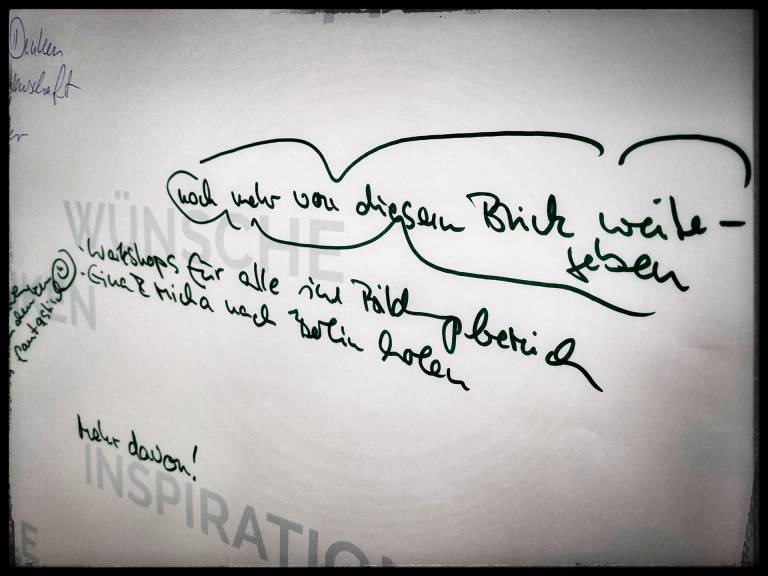 Denken
noch mehr von diesem Blick weite-
geben
WÜNSCHE
· Workshops für alle im Bildungsbereich
· Gina & Micha nach Berlin holen
fantastisch
Mehr davon!
INSPIRATION